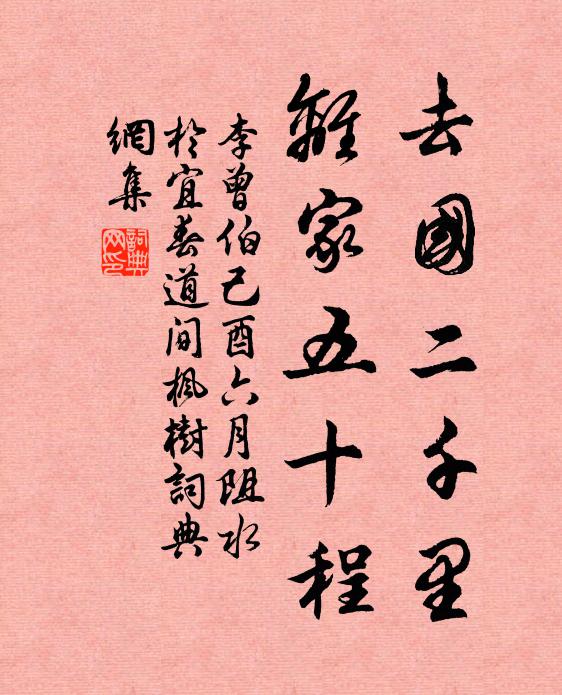 去國二千里
離家五十程
李曾伯己酉六月阻水
於宜春道间楓樹詞典
網集
詞典
网印